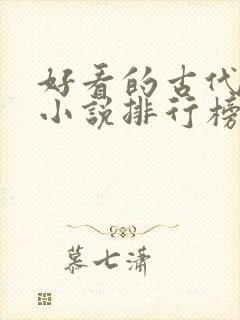 好看的古代
小说排行榜
慕七潇